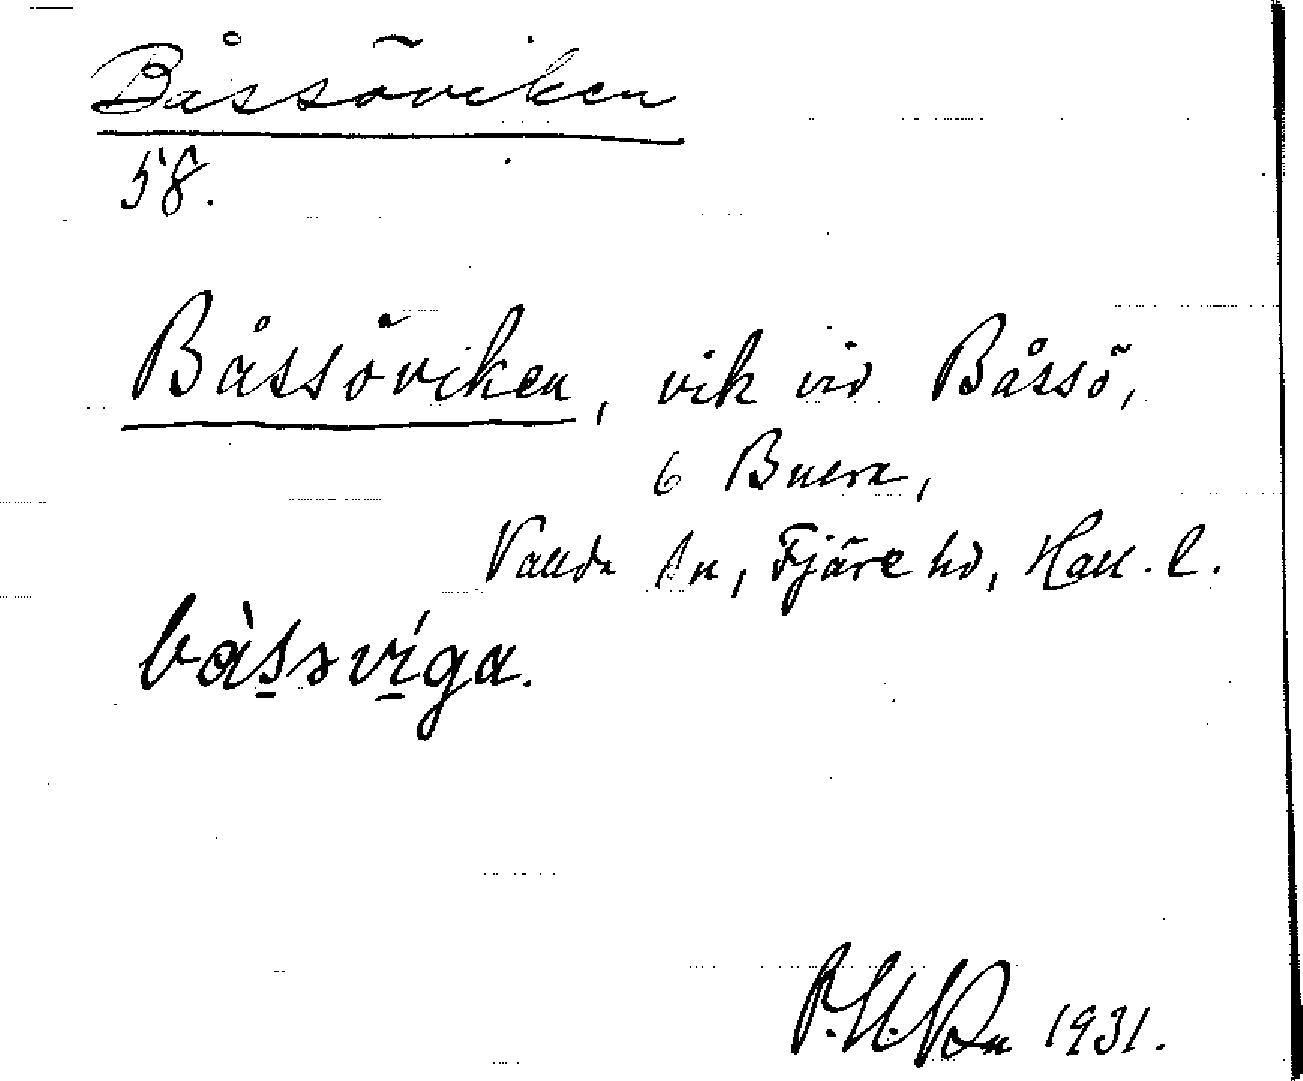 Båssöviken
58.
Båssöviken, vik vid Båssö,
6 Buera,
Vallda sn, Fjäre hd, Hall. l.
bàssvíga.
1931.